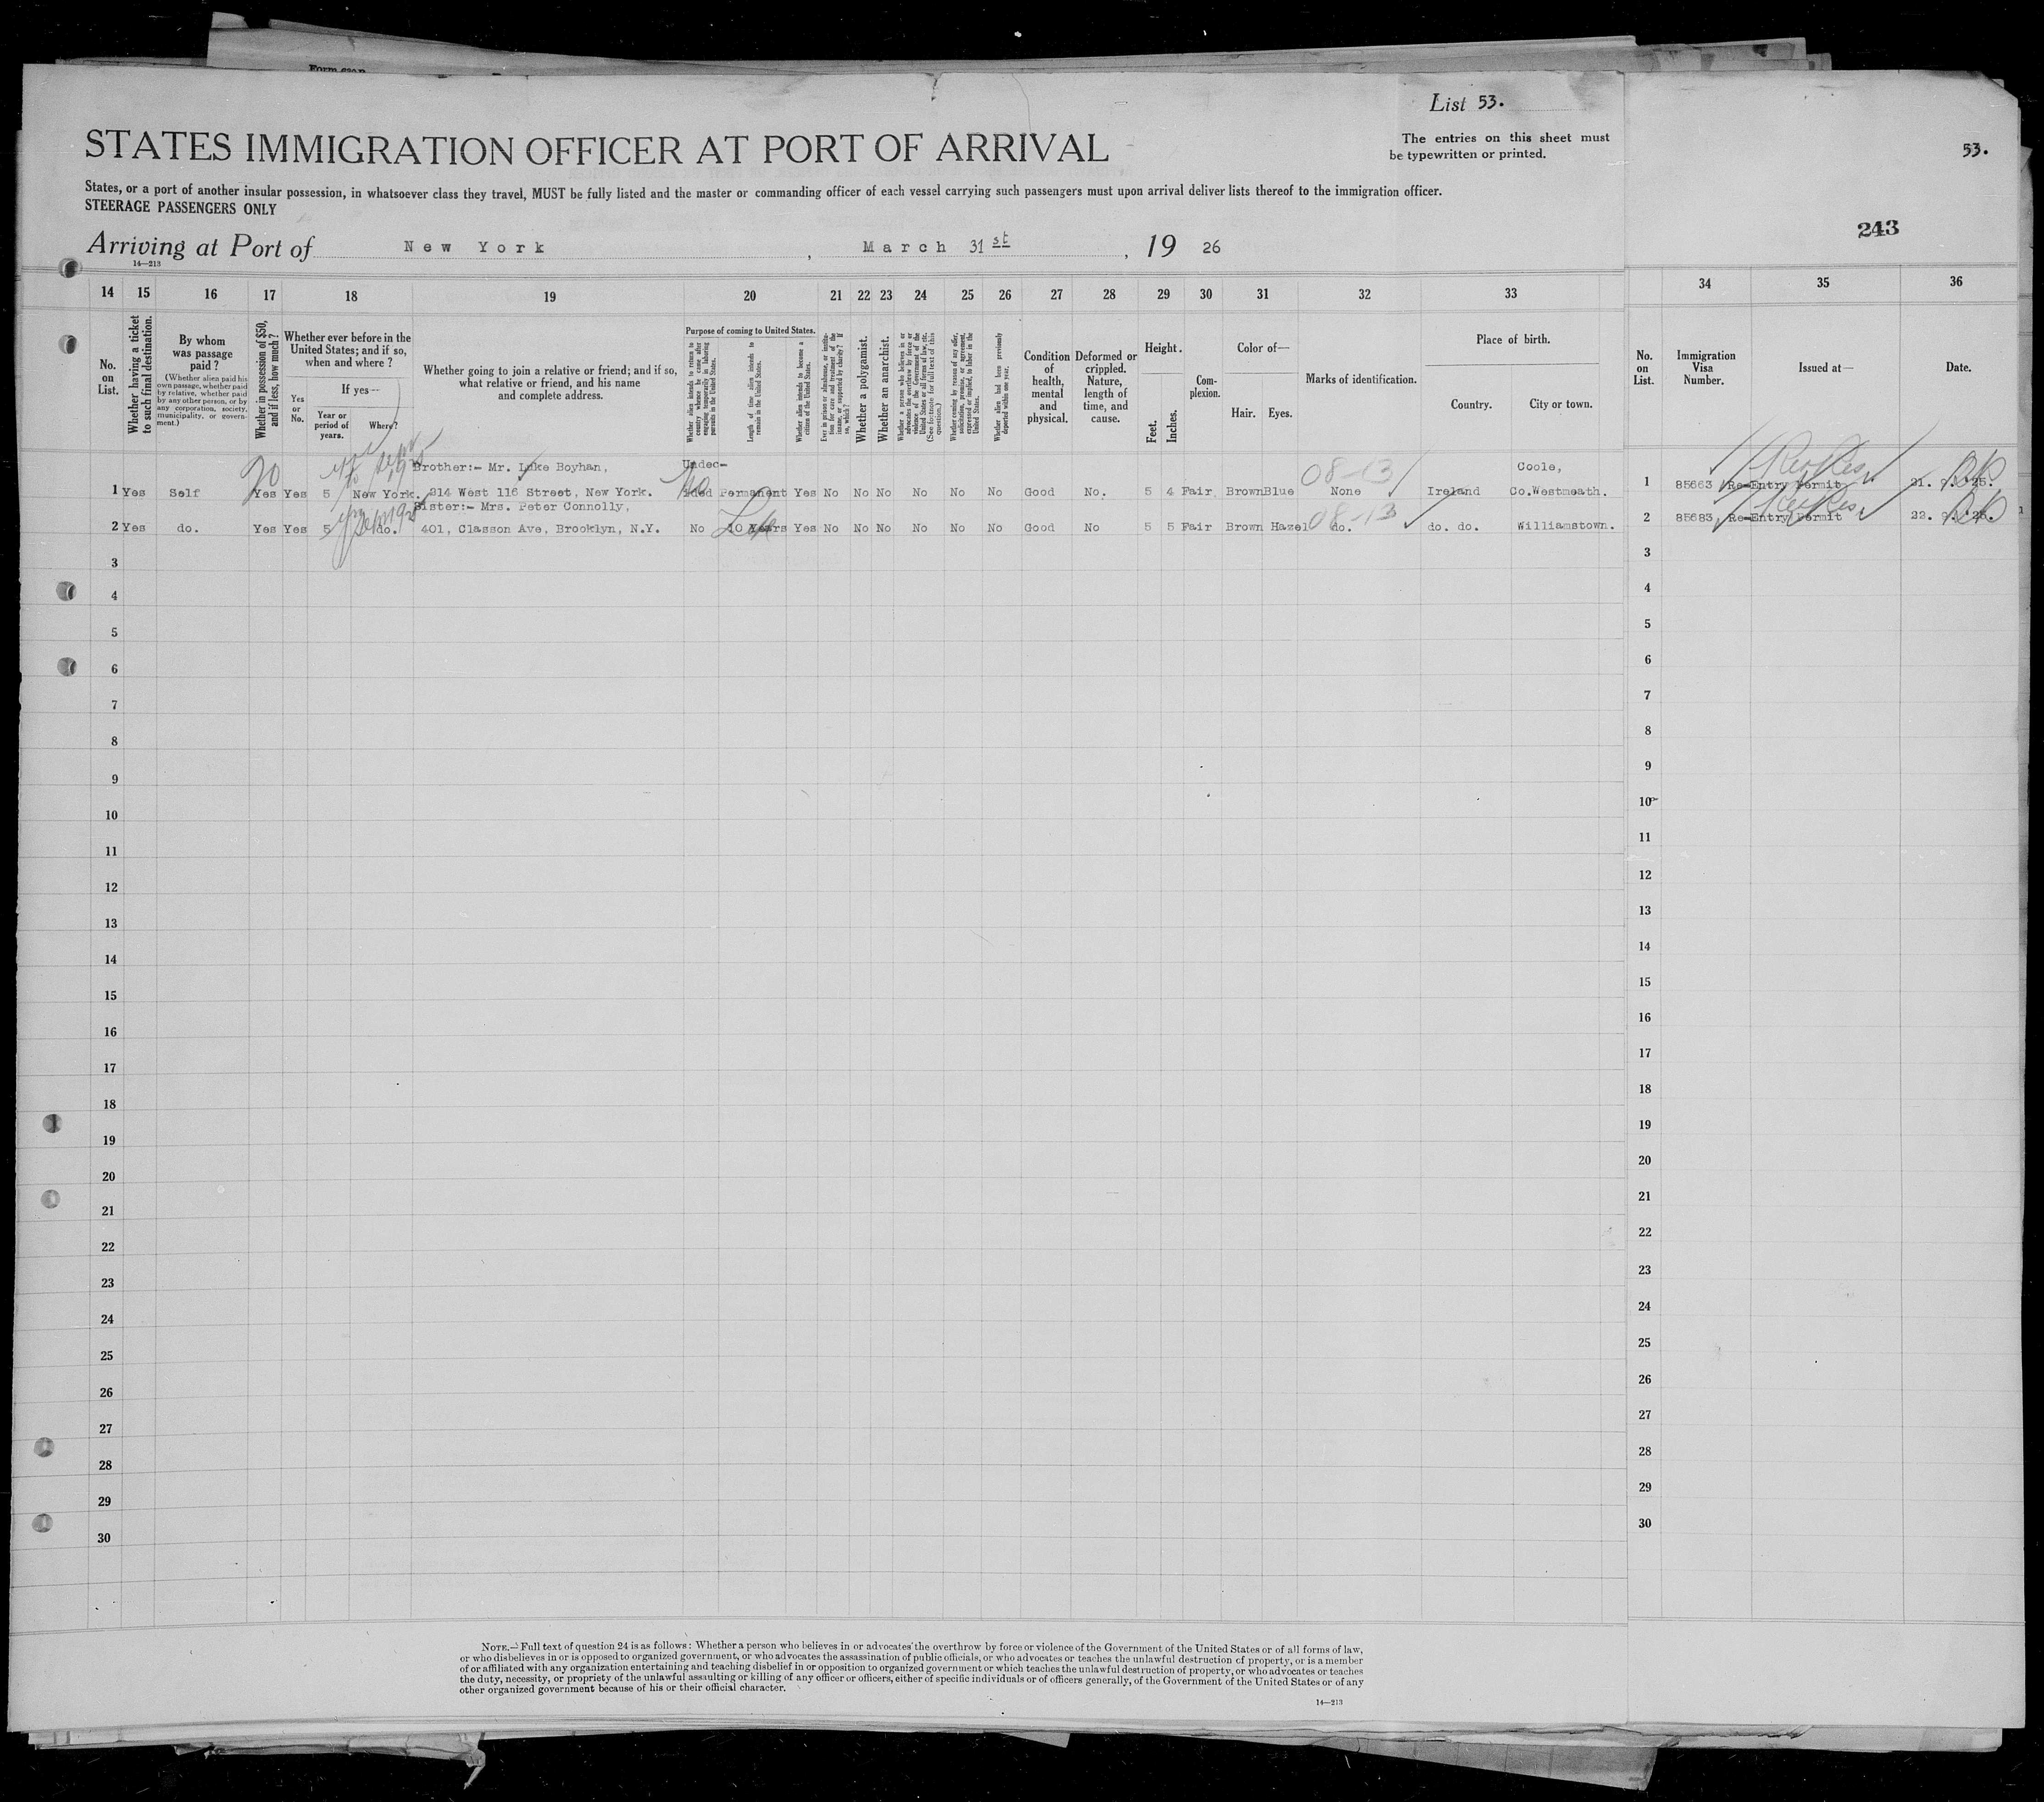 List 53.
STATES IMMIGRATION OFFICER AT PORT OF ARRIVAL
The entries on this sheet must
be typewritten or printed.
53.
States, or a port of another insular possession, in whatsoever class they travel, MUST be fully listed and the master or commanding officer of each vessel carrying such passengers must upon arrival deliver lists thereof to the immigration officer.
STEERAGE PASSENGERS ONLY
243
Arriving at Port of New York, March 31st, 19 26
14—213
14 15 16 17 18 19 20 21 22 23 24 25 26 27 28 29 30 31 32 33 34 35 36
No. on List.
Whether having a ticket to such final destination.
By whom was passage paid?
(Whether alien paid his own passage, whether paid by relative, whether paid by any other person, or by any corporation, society, municipality, or government.)
Whether in possession of $50, and if less, how much?
Whether ever before in the United States; and if so, when and where?
Yes or No.
If yes—
Year or period of years.
Where?
Whether going to join a relative or friend; and if so, what relative or friend, and his name and complete address.
Purpose of coming to United States.
Whether alien intends to return to country whence he came after engaging temporarily in laboring pursuits in the United States.
Length of time alien intends to remain in the United States.
Whether alien intends to become a citizen of the United States.
Ever in prison or almshouse, or institution for care and treatment of the insane, or supported by charity? If so, which?
Whether a polygamist.
Whether an anarchist.
Whether a person who believes in or advocates the overthrow by force or violence of the Government of the United States or all forms of law, etc. (See footnote for full text of this question.)
Whether coming by reason of any offer, solicitation, promise, or agreement, expressed or implied, to labor in the United States.
Whether alien had been previously deported within one year.
Condition of health, mental and physical.
Deformed or crippled. Nature, length of time, and cause.
Height.
Feet. Inches.
Complexion.
Color of—
Hair. Eyes.
Marks of identification.
Place of birth.
Country. City or town.
No. on List.
Immigration Visa Number.
Issued at—
Date.
20
Brother:- Mr. Luke Boyhan, Undec- 08-13 Coole,
1 Yes Self Yes Yes 5 New York. 314 West 116 Street, New York. ided Permanent Yes No No No No No No Good No. 5 4 Fair Brown Blue None Ireland Co.Westmeath. 1 85663 Re-Entry Permit
No
Sister:- Mrs. Peter Connolly, 08-13
2 Yes do. Yes Yes 5 do. 401, Classon Ave, Brooklyn, N.Y. No 10 Years Yes No No No No No No Good No 5 5 Fair Brown Hazel do. do. do. Williamstown. 2 85683 Re-Entry Permit
3 3
4 4
5 5
6 6
7 7
8 8
9 9
10 10
11 11
12 12
13 13
14 14
15 15
16 16
17 17
18 18
19 19
20 20
21 21
22 22
23 23
24 24
25 25
26 26
27 27
28 28
29 29
30 30
NOTE.—Full text of question 24 is as follows: Whether a person who believes in or advocates the overthrow by force or violence of the Government of the United States or of all forms of law,
or who disbelieves in or is opposed to organized government, or who advocates the assassination of public officials, or who advocates or teaches the unlawful destruction of property, or is a member
of or affiliated with any organization entertaining and teaching disbelief in or opposition to organized government or which teaches the unlawful destruction of property, or who advocates or teaches
the duty, necessity, or propriety of the unlawful assaulting or killing of any officer or officers, either of specific individuals or of officers generally, of the Government of the United States or of any
other organized government because of his or their official character.
14—213